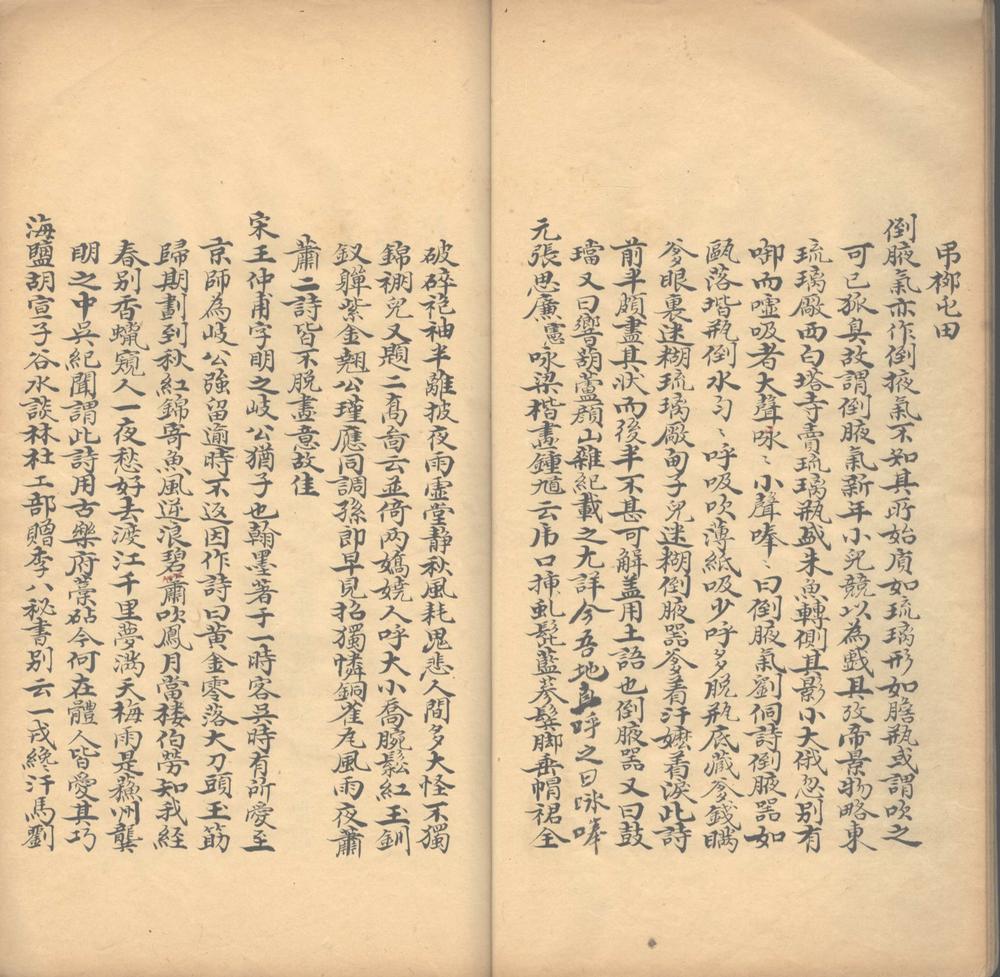 吊栁屯田
倒腋氣亦作倒掖氣不知其所始質如琉璃形如膽瓶或謂吹之
可已狐臭故謂倒腋氣新年小兒競以為戲且攷帝景物略東
琉璃厰西白塔寺賣琉璃瓶盛朱魚轉側其影小大俄忽別有
啣而噓吸者大聲咏〻小聲唪〻曰倒腋氣劉侗詩倒腋器如
甌落堦瓶倒水勻〻呼吸吹薄紙吸少呼多脫瓶底藏爹錢瞞
爹眼裏迷糊琉璃厰甸子兒迷糊倒腋器爹看汗嬤看淚此詩
前半頗盡其狀而後半不甚可解盖用土語也倒腋器又曰鼓
璫又曰響胡盧顏山雜紀載之尤詳今吾地直呼之曰咏唪
元張思廉憲咏梁楷畫鍾馗云帋口揷虬髭藍葠髮脚垂帽裙全
破碎袍袖半離披夜雨虛堂靜秋風耗鬼悲人間多大怪不獨
錦棚兒又題二喬啚云並倚两嬌嬈人呼大小喬腕鬆紅玉釧
釵嚲紫金翹公瑾應同調孫郎早見招獨憐銅雀夗風雨夜蕭
蕭二詩皆不脫畫意故佳
宋王仲甫字明之岐公猶子也翰墨著于一時客吳時有所愛至
京師為岐公強留逾時不返因作詩曰黄金零落大刀頭玉筯
歸期劃到秋紅錦寄魚風逆浪碧蕭吹鳳月當樓伯勞知我經
春別香蠟窺人一夜愁好去渡江千里夢滿天梅雨是蘇州龔
明之中吳紀聞謂此詩用古樂府藁砧今何在體人皆愛其巧
海鹽胡宣子谷水談林杜工部贈李八秘書別云一戎纔汗馬劉